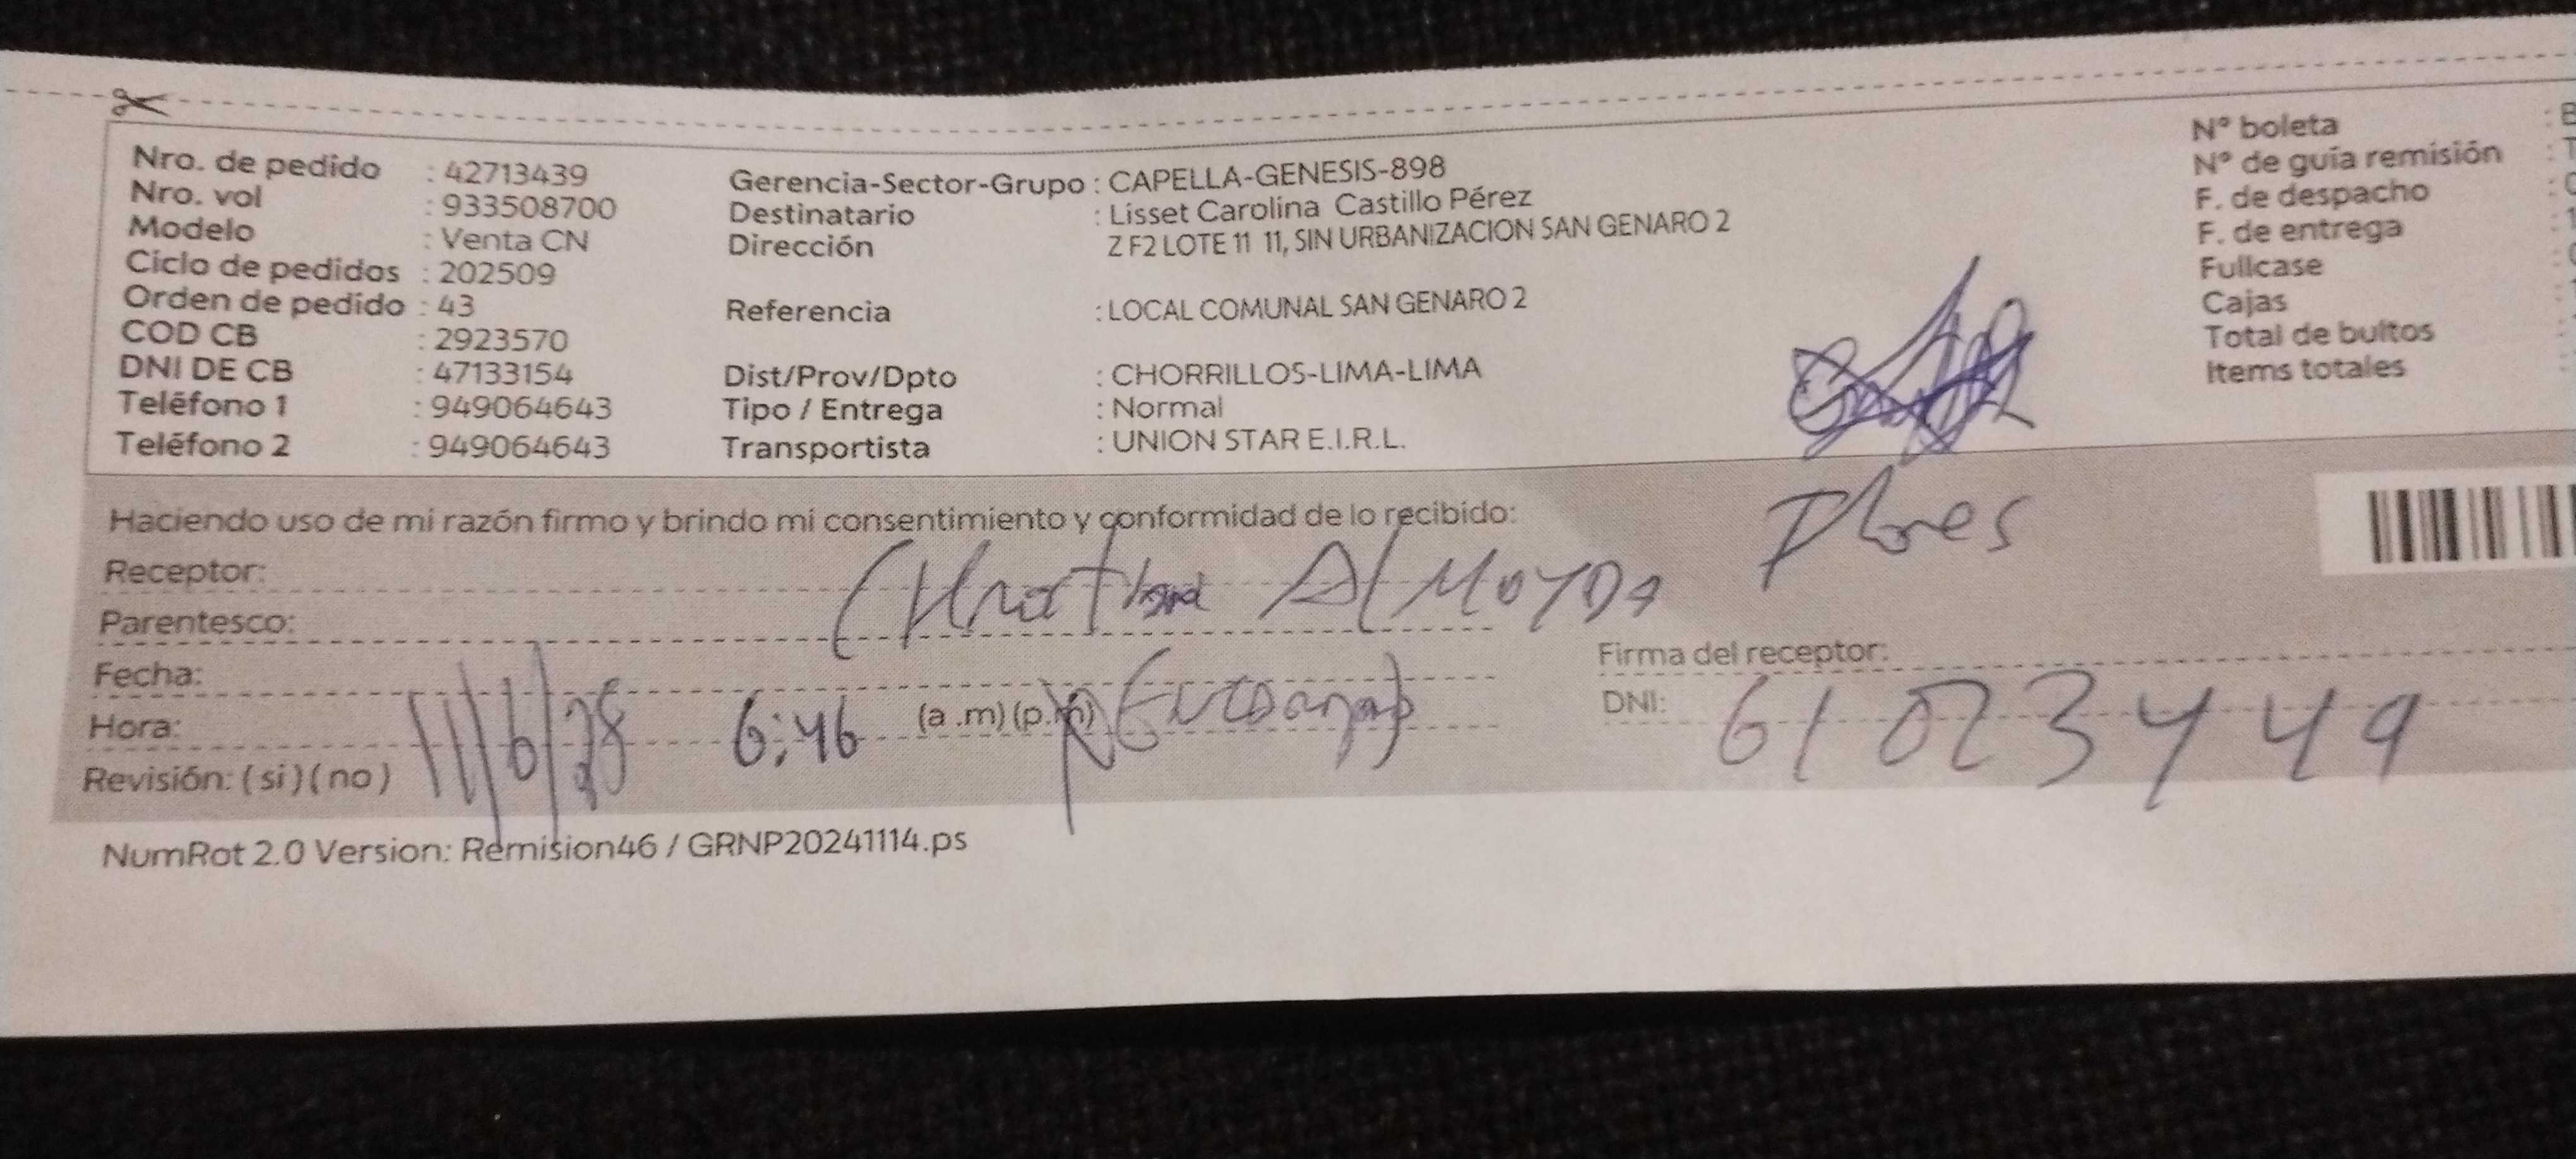 Nro. de pedido : 42713439
Nro. vol : 933508700
Modelo : Venta CN
Ciclo de pedidos : 202509
Orden de pedido : 43
COD CB : 2923570
DNI DE CB : 47133154
Teléfono 1 : 949064643
Teléfono 2 : 949064643
Gerencia-Sector-Grupo : CAPELLA-GENESIS-898
Destinatario : Lisset Carolina Castillo Pérez
Dirección Z F2 LOTE 11 11, SIN URBANIZACION SAN GENARO 2
Referencia : LOCAL COMUNAL SAN GENARO 2
Dist/Prov/Dpto : CHORRILLOS-LIMA-LIMA
Tipo / Entrega : Normal
Transportista : UNION STAR E.I.R.L.
Nº boleta
Nº de guía remisión
F. de despacho
F. de entrega
Fullcase
Cajas
Total de bultos
Items totales
Haciendo uso de mi razón firmo y brindo mi consentimiento y conformidad de lo recibido:
Flores
Receptor:
Parentesco:
Fecha:
Firma del receptor:
Hora: 6:46 (a .m) (p.m)
DNI: 61023449
Revisión: ( si ) ( no )
NumRot 2.0 Version: Remision46 / GRNP20241114.ps